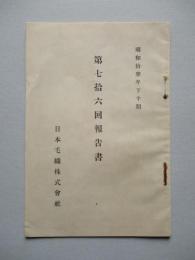 昭和拾壹年下半期
第七拾六回報告書
日本毛織株式會社